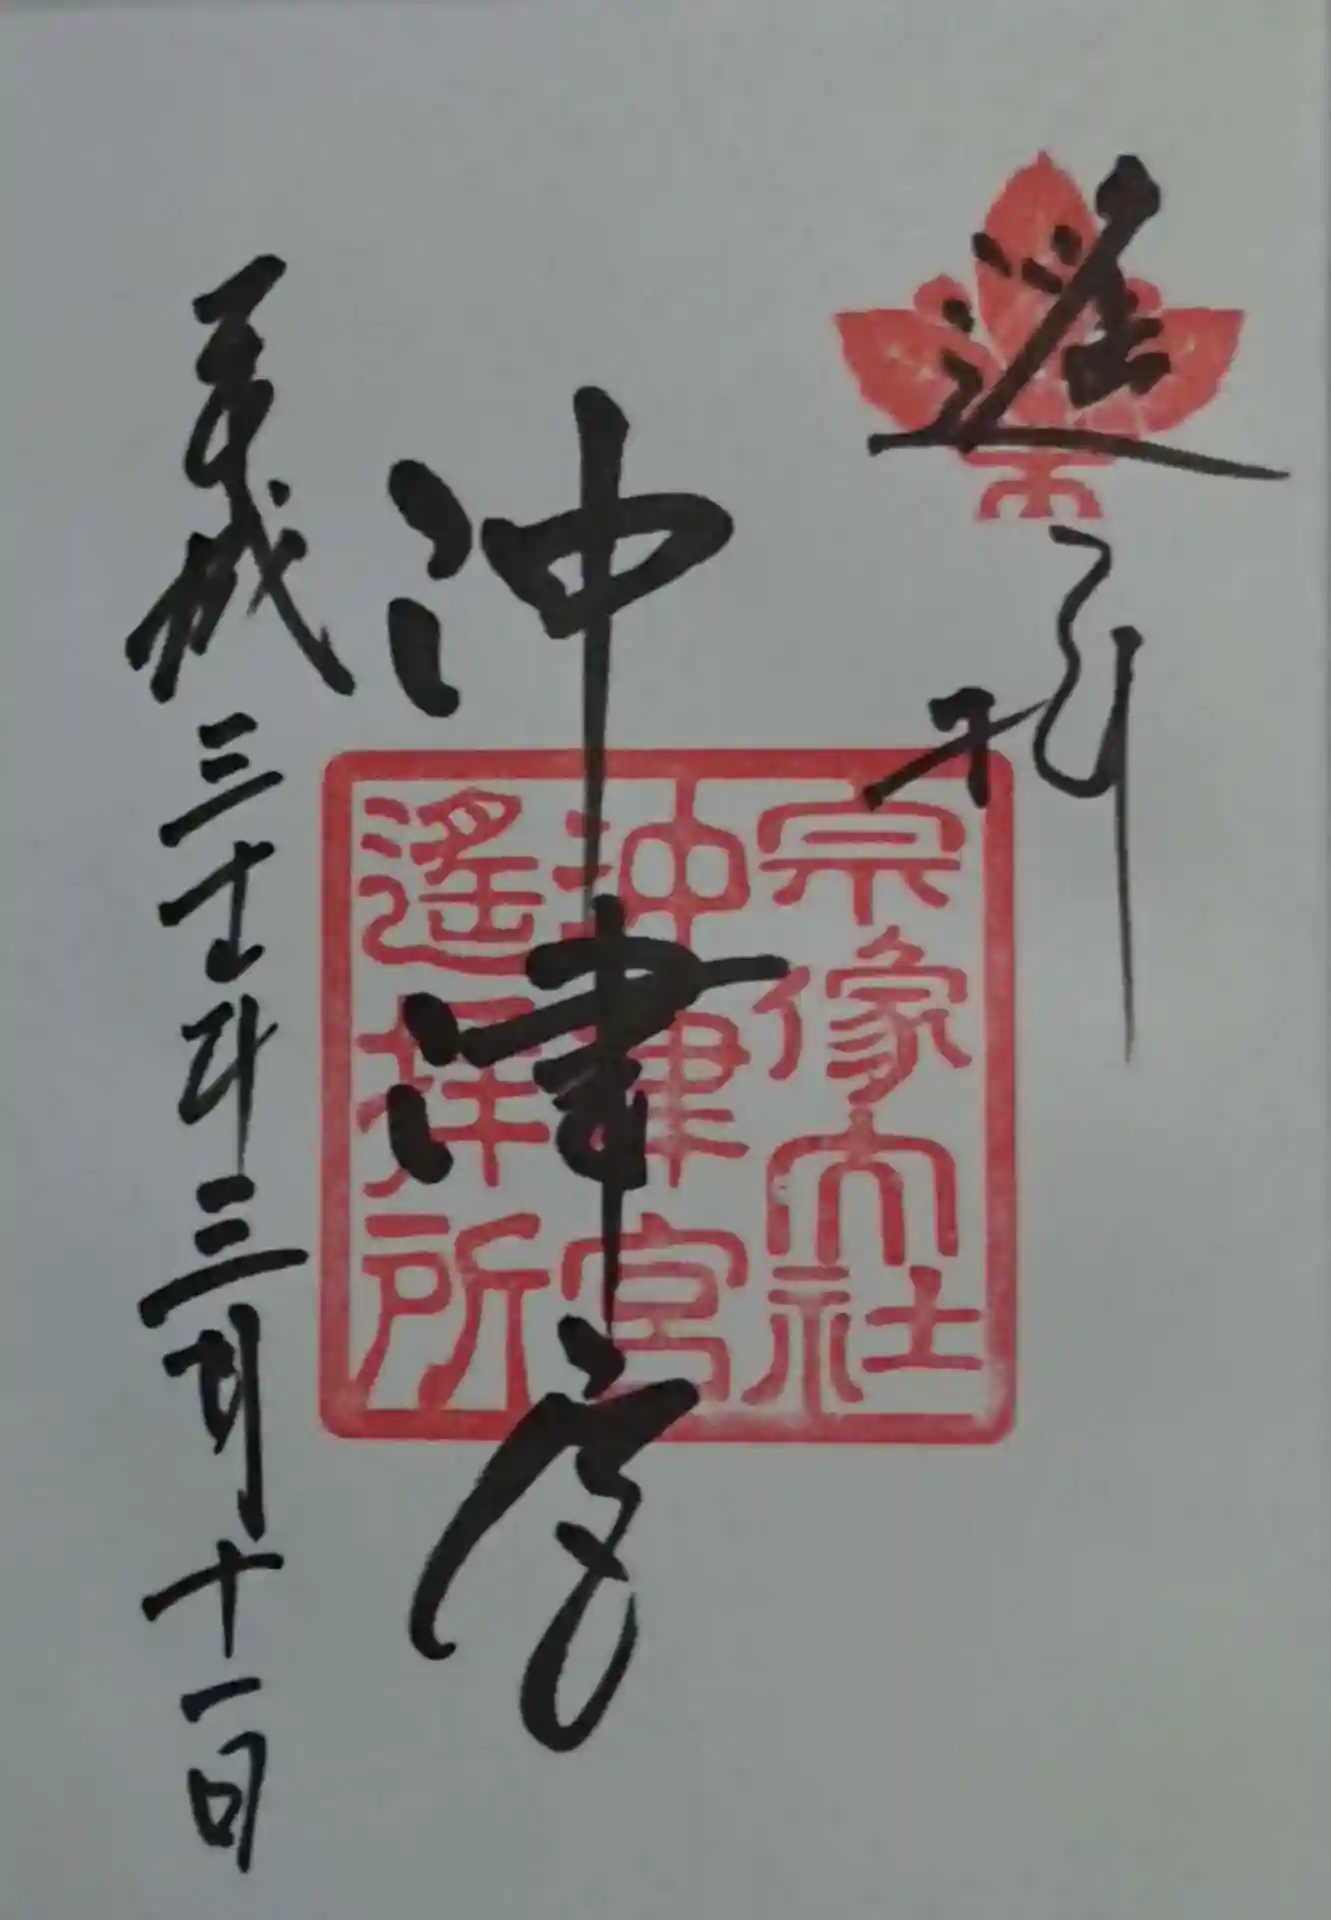 遙拝
沖津宮
平成三十一年三月十一日
宗像大社
沖津宮
遙拝所